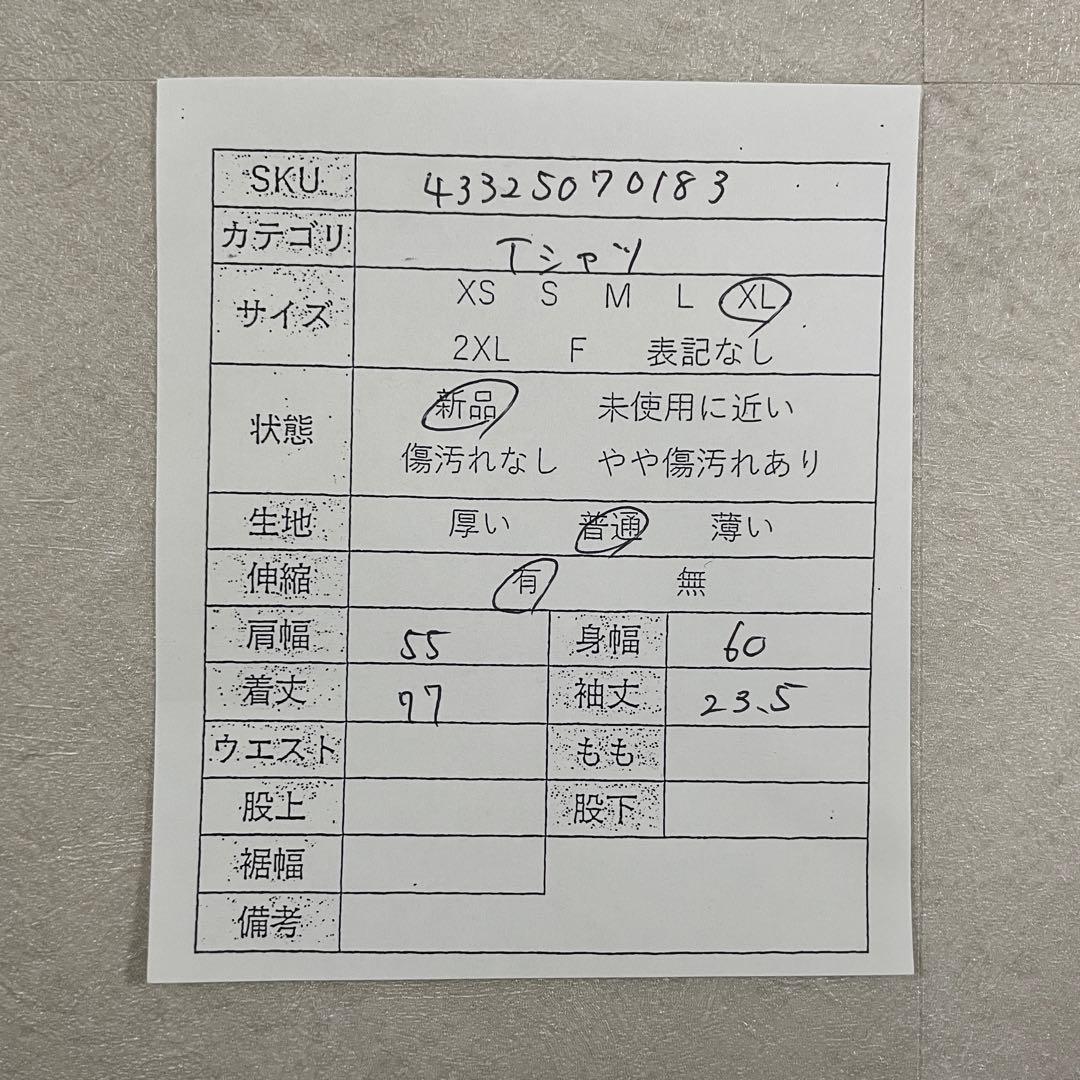 SKU 43325070183
カテゴリ Tシャツ
サイズ XS S M L XL
2XL F 表記なし
状態 新品 未使用に近い
傷汚れなし やや傷汚れあり
生地 厚い 普通 薄い
伸縮 有 無
肩幅 55 身幅 60
着丈 77 袖丈 23.5
ウエスト もも
股上 股下
裾幅
備考